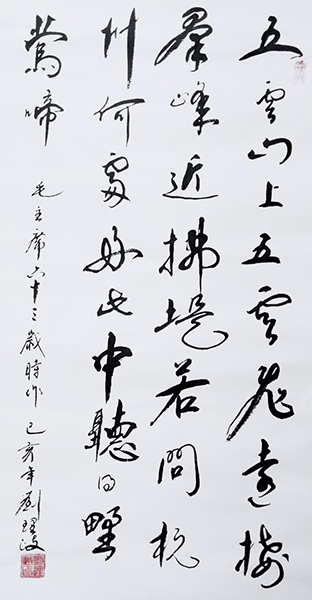 五雲山上五雲飛遠接
羣峰近拂堤若問杭
州何處好此中聽得野
鶯啼
毛主席六十三歲時作 己亥年劉理波